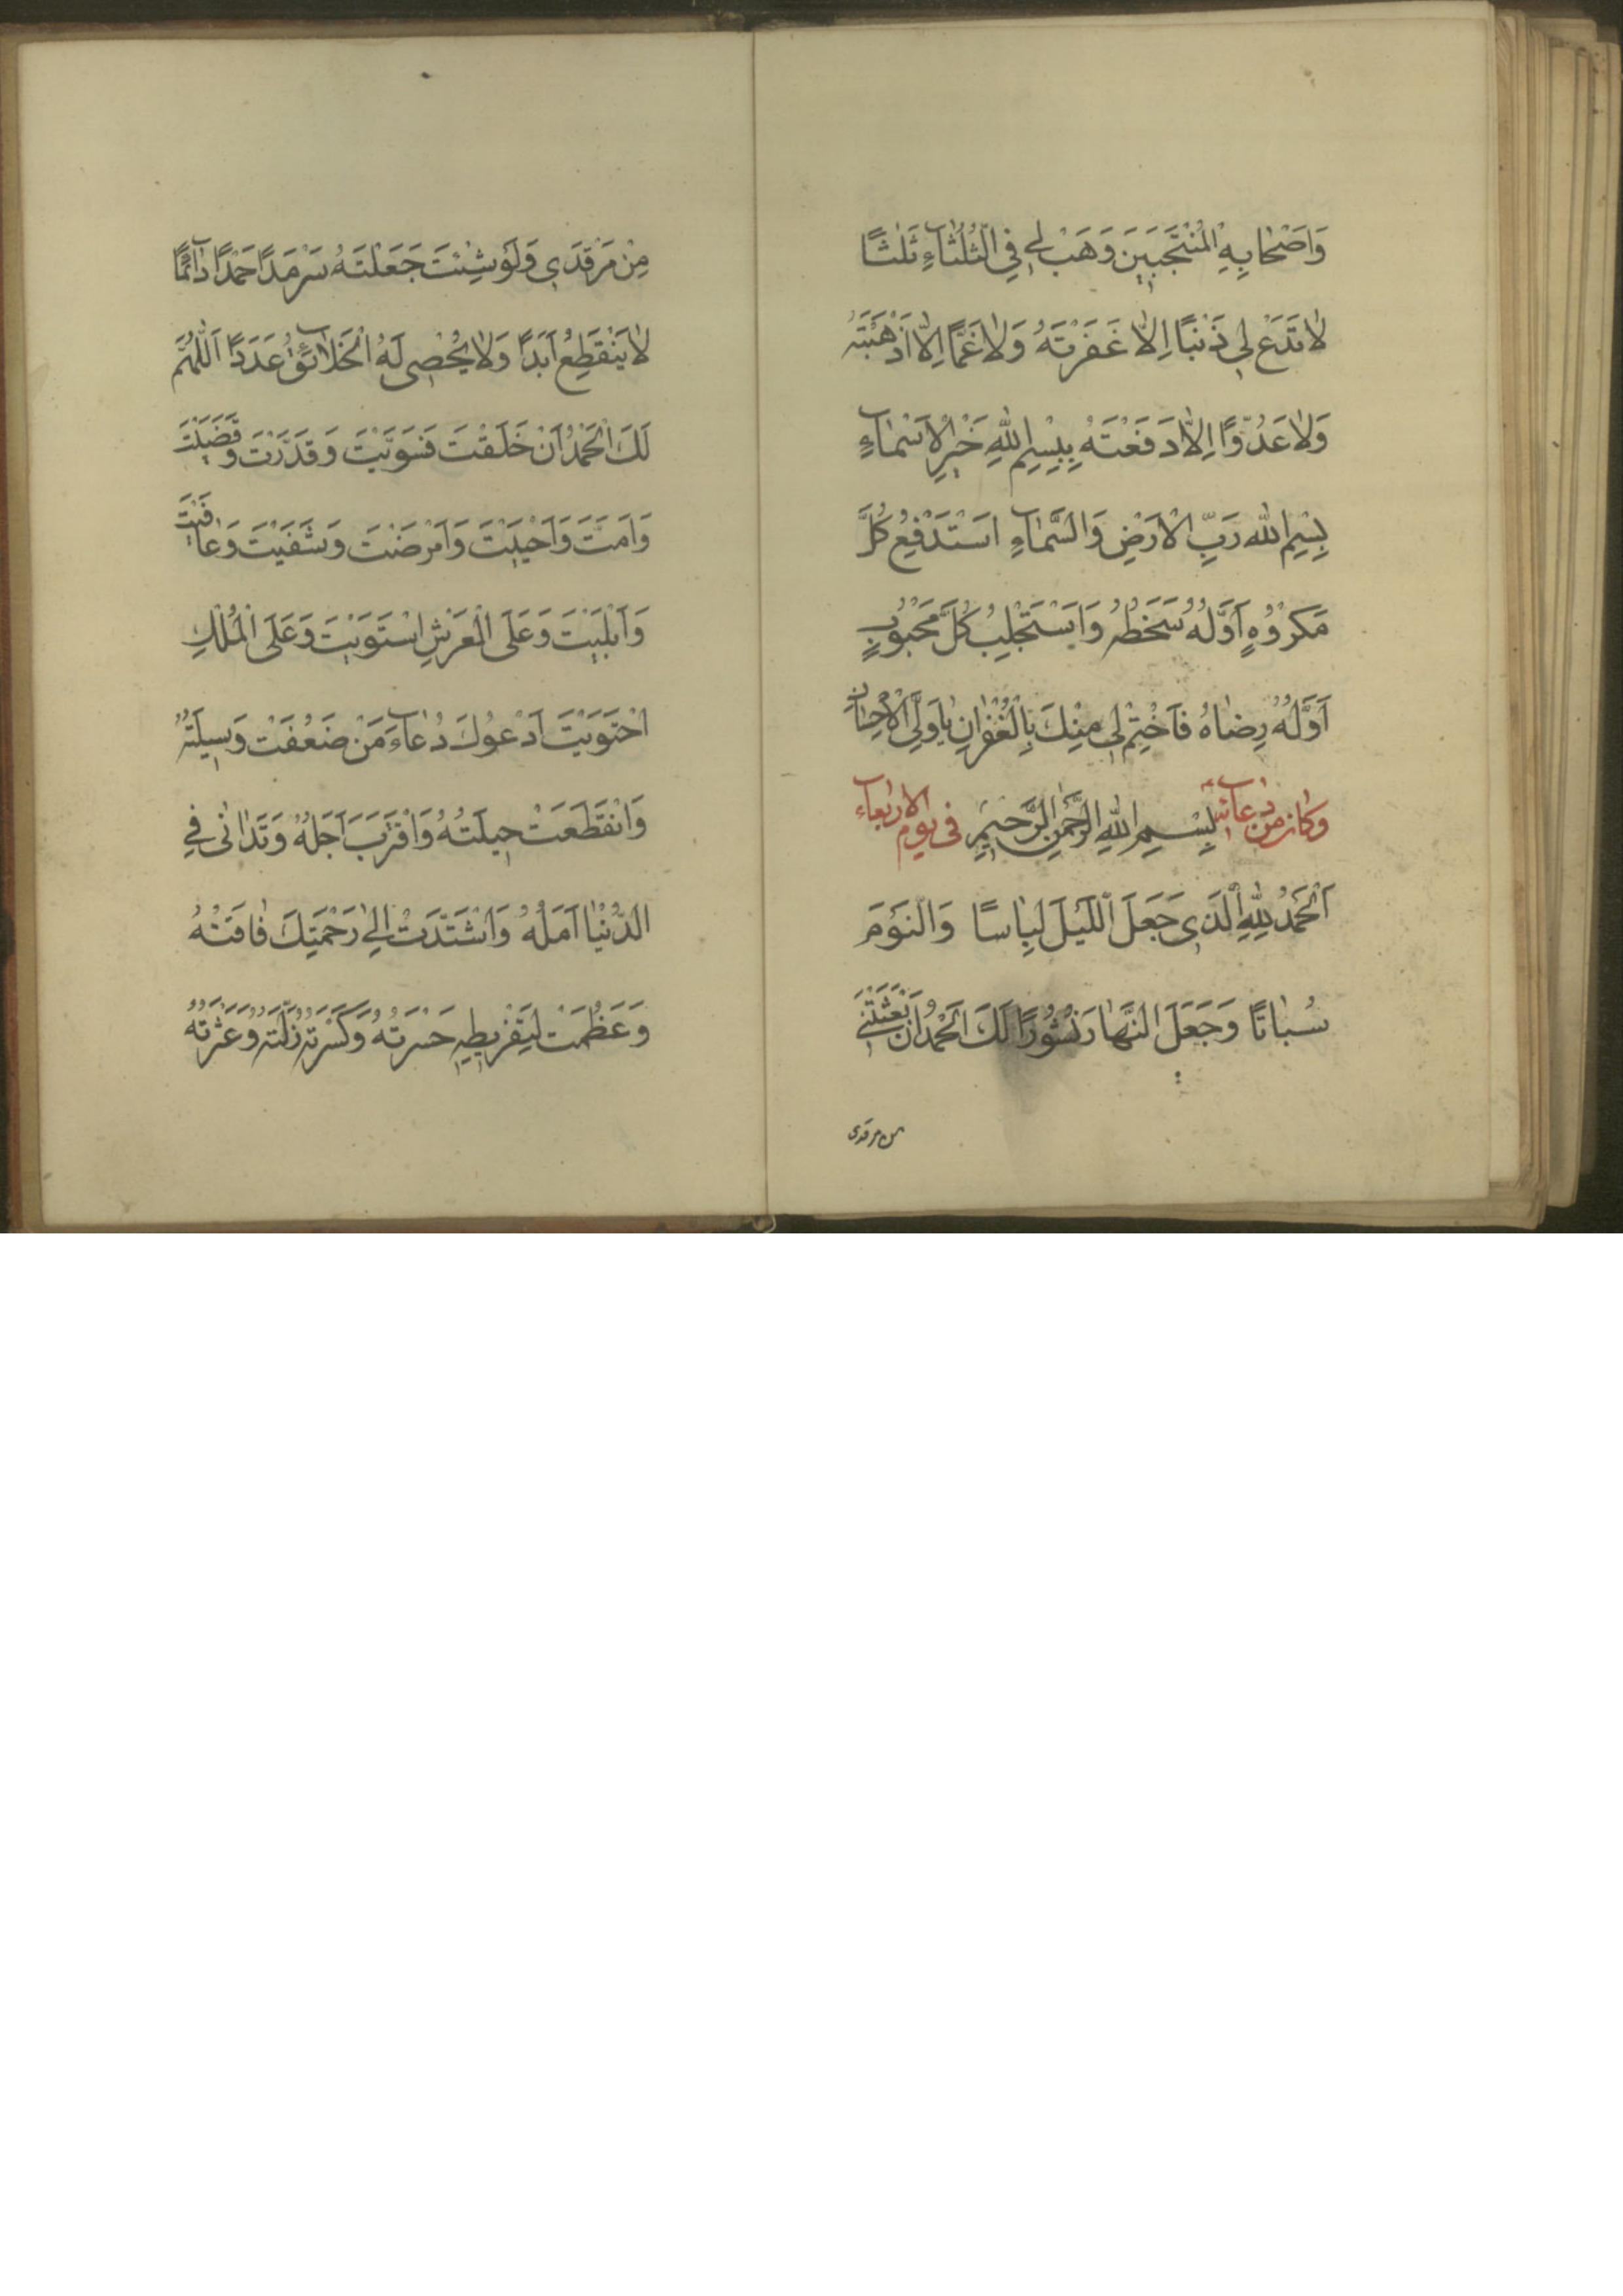 وَاَصْحٰابِهِ الْمُنْتَجَبِيَنَ وَهَبْ لِي فِي الثُّلٰثٰاءِ ثَلٰثًا
لٰا تَدَعْ لِي ذَنْبًا اِلّٰا غَفَرْتَهُ وَلٰا غَمًّا اِلّٰا اَذْهَبْتَهُ
وَلٰا عَدُوًّا اِلّٰا دَفَعْتَهُ بِبِسْمِ اللهِ خَيْرِ الْاَسْمٰاءِ
بِسْمِ اللهِ رَبِّ الْاَرْضِ وَالسَّمٰاءِ اَسْتَدْفِعُ كُلَّ
مَكْرُوْهٍ اَوَّلُهُ سَخَطُهُ وَاَسْتَجْلِبُ كُلَّ مَحْبُوْبٍ
اَوَّلُهُ رِضٰاهُ فَاخْتِمْ لِي مِنْكَ بِالْغُفْرٰانِ يٰا وَلِيَّ الْاِحْسٰانِ
وكان من دعائه بِسْمِ اللهِ الرَّحْمٰنِ الرَّحِيمِ في يوم الاربعاء
اَلْحَمْدُ لِلّٰهِ الَّذِي جَعَلَ اللَّيْلَ لِبٰاسًا وَالنَّوْمَ
سُبٰاتًا وَجَعَلَ النَّهٰارَ نُشُورًا لَكَ الْحَمْدُ اَنْ بَعَثْتَنِي
من مرقدى
مِنْ مَرْقَدِي وَلَوْ شِئْتَ جَعَلْتَهُ سَرْمَدًا حَمْدًا دٰائِمًا
لٰا يَنْقَطِعُ اَبَدًا وَلٰا يُحْصِي لَهُ الْخَلٰائِقُ عَدَدًا اَللّٰهُمَّ
لَكَ الْحَمْدُ اَنْ خَلَقْتَ فَسَوَّيْتَ وَقَدَّرْتَ وَقَضَيْتَ
وَاَمَتَّ وَاَحْيَيْتَ وَاَمْرَضْتَ وَشَفَيْتَ وَعٰافَيْتَ
وَاَبْلَيْتَ وَعَلَى الْعَرْشِ اسْتَوَيْتَ وَعَلَى الْمُلْكِ
احْتَوَيْتَ اَدْعُوكَ دُعٰاءَ مَنْ ضَعُفَتْ وَسِيلَتُهُ
وَانْقَطَعَتْ حِيلَتُهُ وَاقْتَرَبَ اَجَلُهُ وَتَدٰانٰى فِي
الدُّنْيٰا اَمَلُهُ وَاشْتَدَّتْ اِلٰى رَحْمَتِكَ فٰاقَتُهُ
وَعَظُمَتْ لِتَفْرِيطِهِ حَسْرَتُهُ وَكَثُرَتْ زَلَّتُهُ وَعَثْرَتُهُ